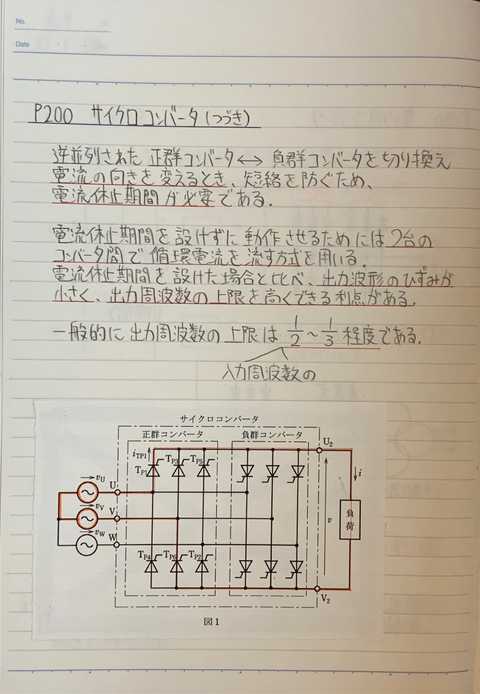 No.
Date
P200 サイクロコンバータ(つづき)
逆並列された 正群コンバータ↔負群コンバータを切り換え
電流の向きを変えるとき、短絡を防ぐため、
電流休止期間が必要である.
電流休止期間を設けずに動作させるためには2台の
コンバータ間で循環電流を流す方式を用いる.
電流休止期間を設けた場合と比べ、出力波形のひずみが
小さく、出力周波数の上限を高くできる利点がある.
一般的に出力周波数の上限は 1/2〜1/3 程度である.
入力周波数の
サイクロコンバータ
正群コンバータ 負群コンバータ U2
iTP1
TP1 TP3 TP5
vU U
vV V
vW W
v
i
負荷
TP4 TP6 TP2
V2
図1